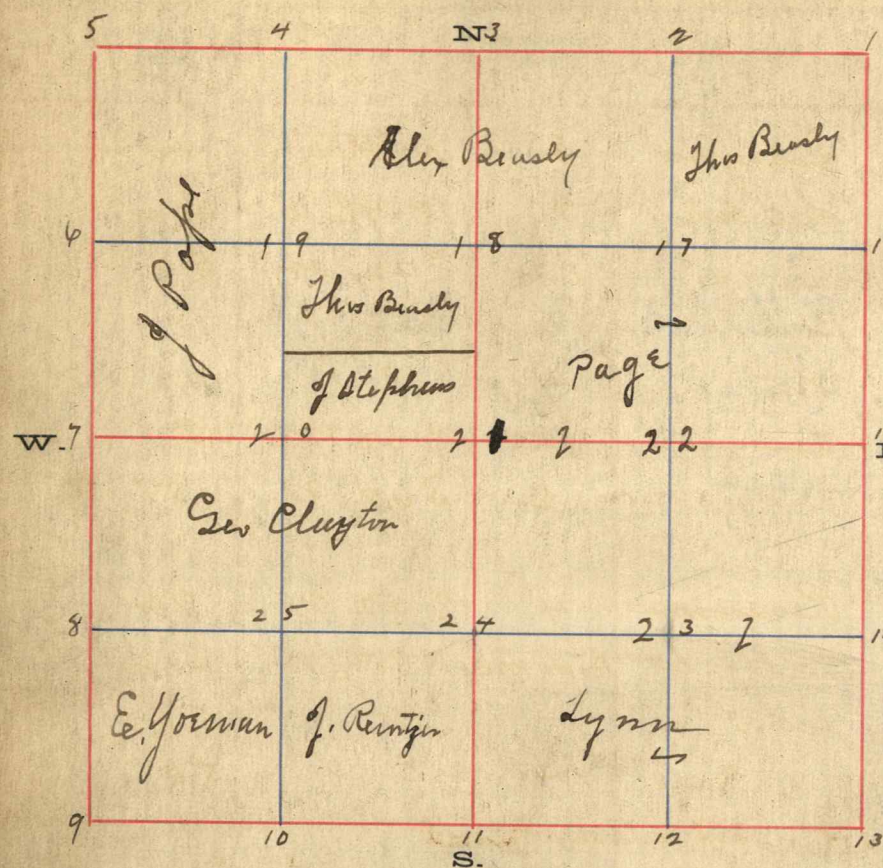 5 4 N. 3 2 1
Alex Beasly
Thos Beasly
J Pope
6 19 18 17 1
Thos Beasly
J Stephens
Page
W. 7 20 21 22 1
Geo Clayton
8 25 24 23 1
E. Yoeman
Lynn
9 10 11 12 13
S.